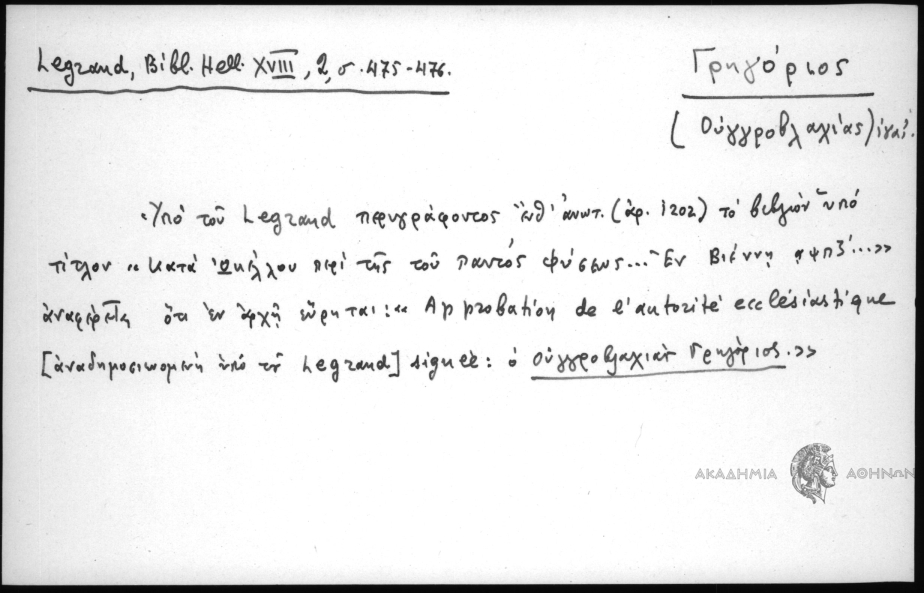 Legrand, Bibl. Hell. XVIII, 2, σ. 475-476.
Γρηγόριος
(Οὑγγροβλαχίας)
Ὑπὸ τοῦ Legrand περιγράφοντος ἀνωτ. (ἀρ. 1202) τὸ βιβλίον ὑπὸ
τίτλον «Κατὰ Ὠκέλλου περὶ τῆς τοῦ παντὸς φύσεως... Ἐν Βιέννῃ ͵αψπζ΄...»
ἀναφέρεται ὅτι ἐν ἀρχῇ εὕρηται: «Approbation de l'autorité ecclésiastique
[ἀναδημοσιευομένη ὑπὸ τοῦ Legrand] signée: ὁ Οὑγγροβλαχίας Γρηγόριος.»
ΑΚΑΔΗΜΙΑ ΑΘΗΝΩΝ